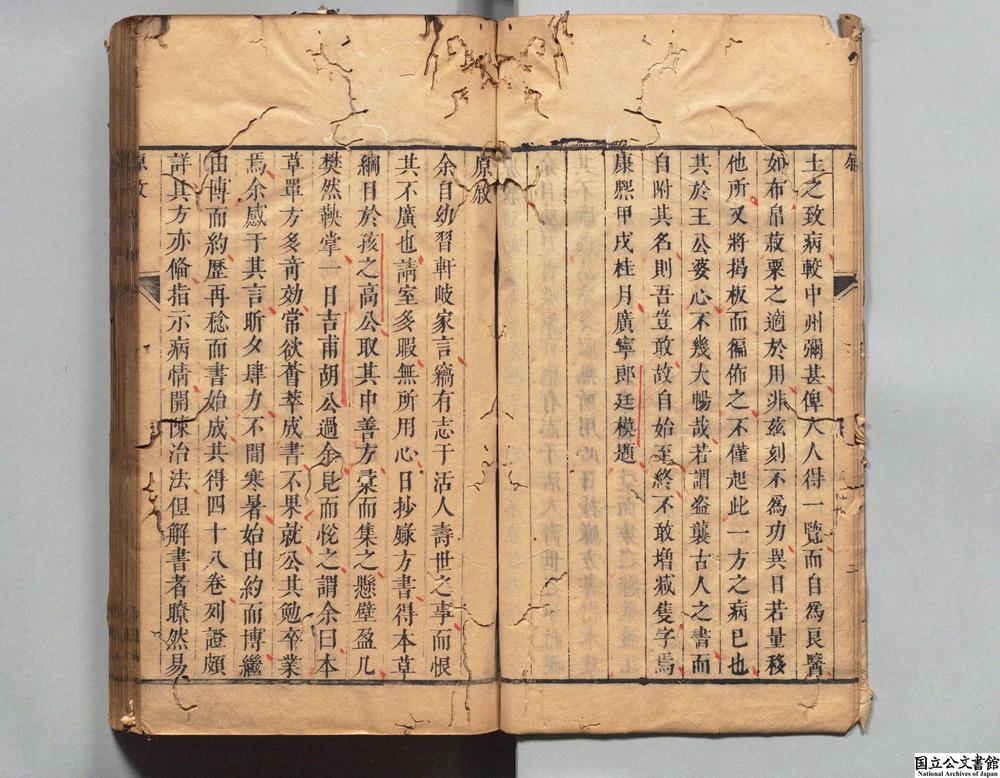 敘
土之致病較中州彌甚俾人人得一覽而自為良醫
如布帛菽粟之適於用非茲刻不為功異日若量移
他所又將揭板而徧佈之不僅起此一方之病已也
其於王公婆心不幾大暢哉若謂盗襲古人之書而
自附其名則吾豈敢故自始至終不敢增減隻字焉
康熙甲戌桂月廣寧郎廷模題
二
原敘
余自幼習軒岐家言竊有志于活人壽世之事而恨
其不廣也請室多暇無所用心日抄錄方書得本草
綱目於孩之高公取其中善方彙而集之懸壁盈几
樊然鞅掌一日吉甫胡公過余見而悅之謂余曰本
草單方多奇効常欲薈萃成書不果就公其勉卒業
焉余感于其言昕夕肆力不間寒暑始由約而博繼
由博而約歷再稔而書始成共得四十八卷列證頗
詳其方亦偹指示病情開陳治法但解書者瞭然易
原敘
国立公文書館
National Archives of Japan